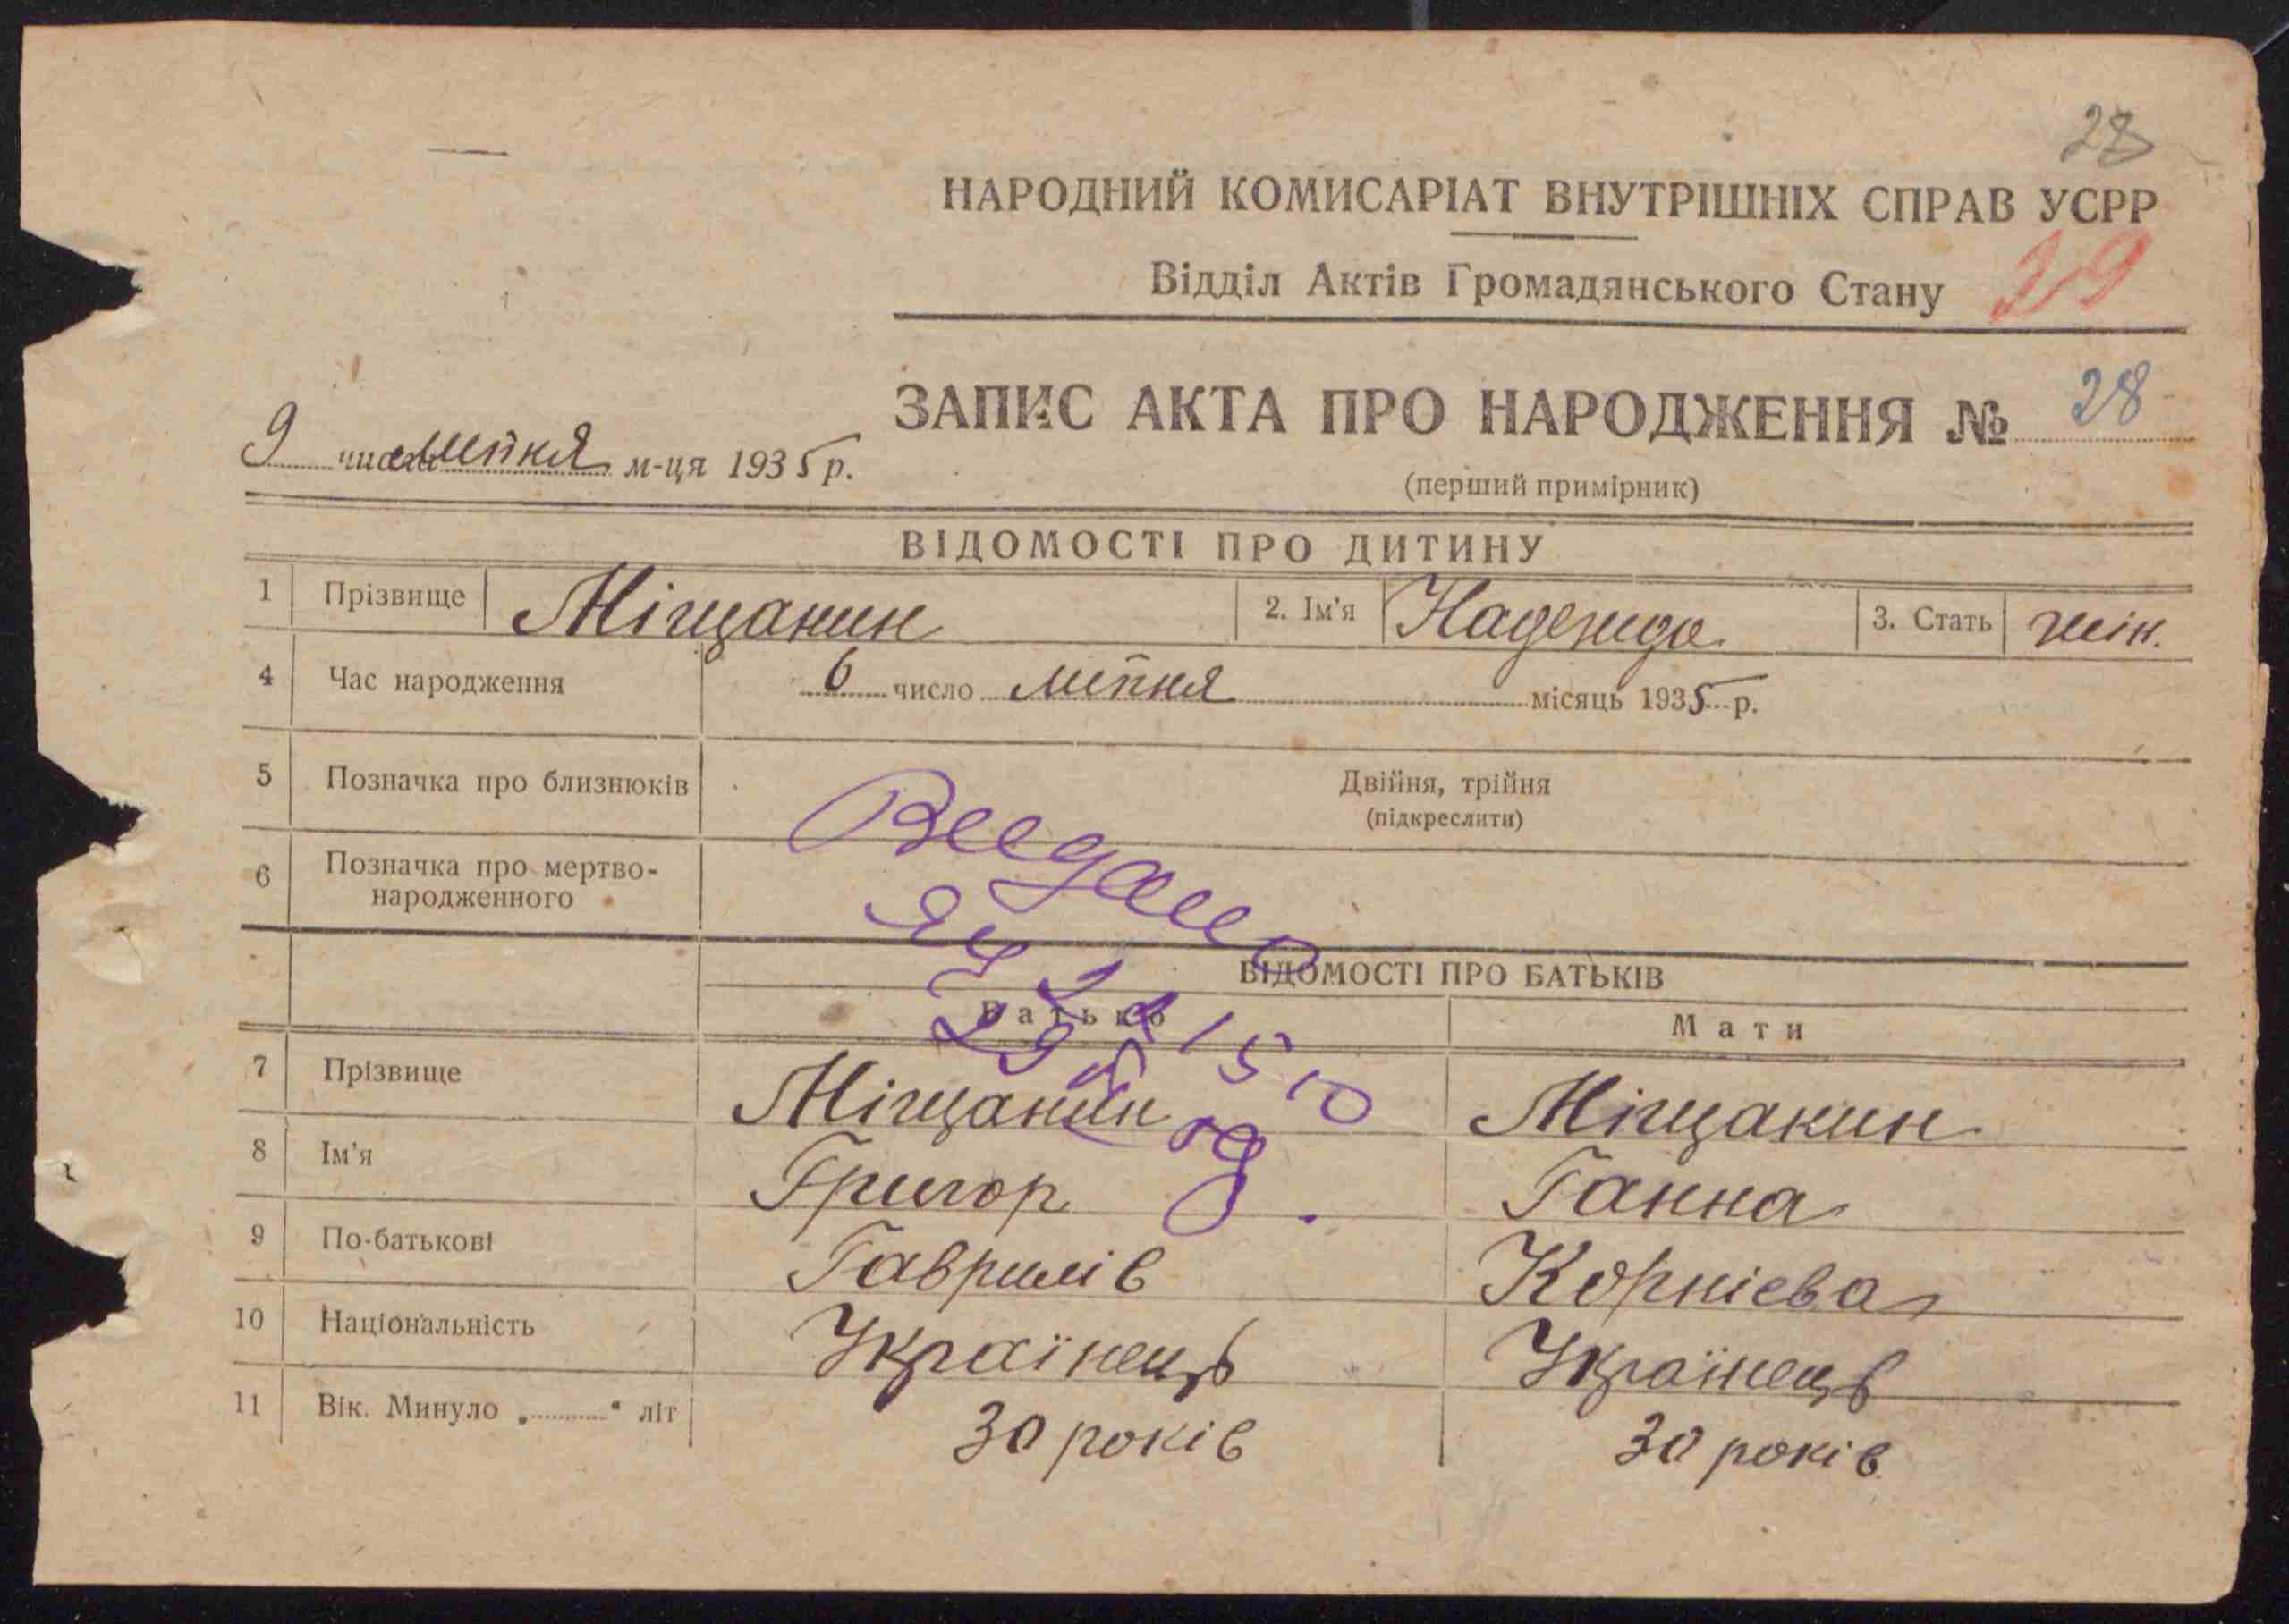 28
НАРОДНИЙ КОМИСАРІАТ ВНУТРІШНІХ СПРАВ УСРР
Відділ Актів Громадянського Стану 29
ЗАПИС АКТА ПРО НАРОДЖЕННЯ № 28
9 числа липня м-ця 1935 р.
(перший примірник)
ВІДОМОСТІ ПРО ДИТИНУ
1 Прізвище Міщанин 2. Ім'я Надежда 3. Стать жін.
4 Час народження 6 число липня місяць 1935 р.
5 Позначка про близнюків Двійня, трійня
(підкреслити)
6 Позначка про мертво-
народженного
ВІДОМОСТІ ПРО БАТЬКІВ
Батько Мати
7 Прізвище Міщанин Міщанин
8 Ім'я Григор Ганна
9 По-батькові Гаврилів Корнієва
10 Національність Українець Українець
11 Вік. Минуло „ “ літ 30 років 30 років